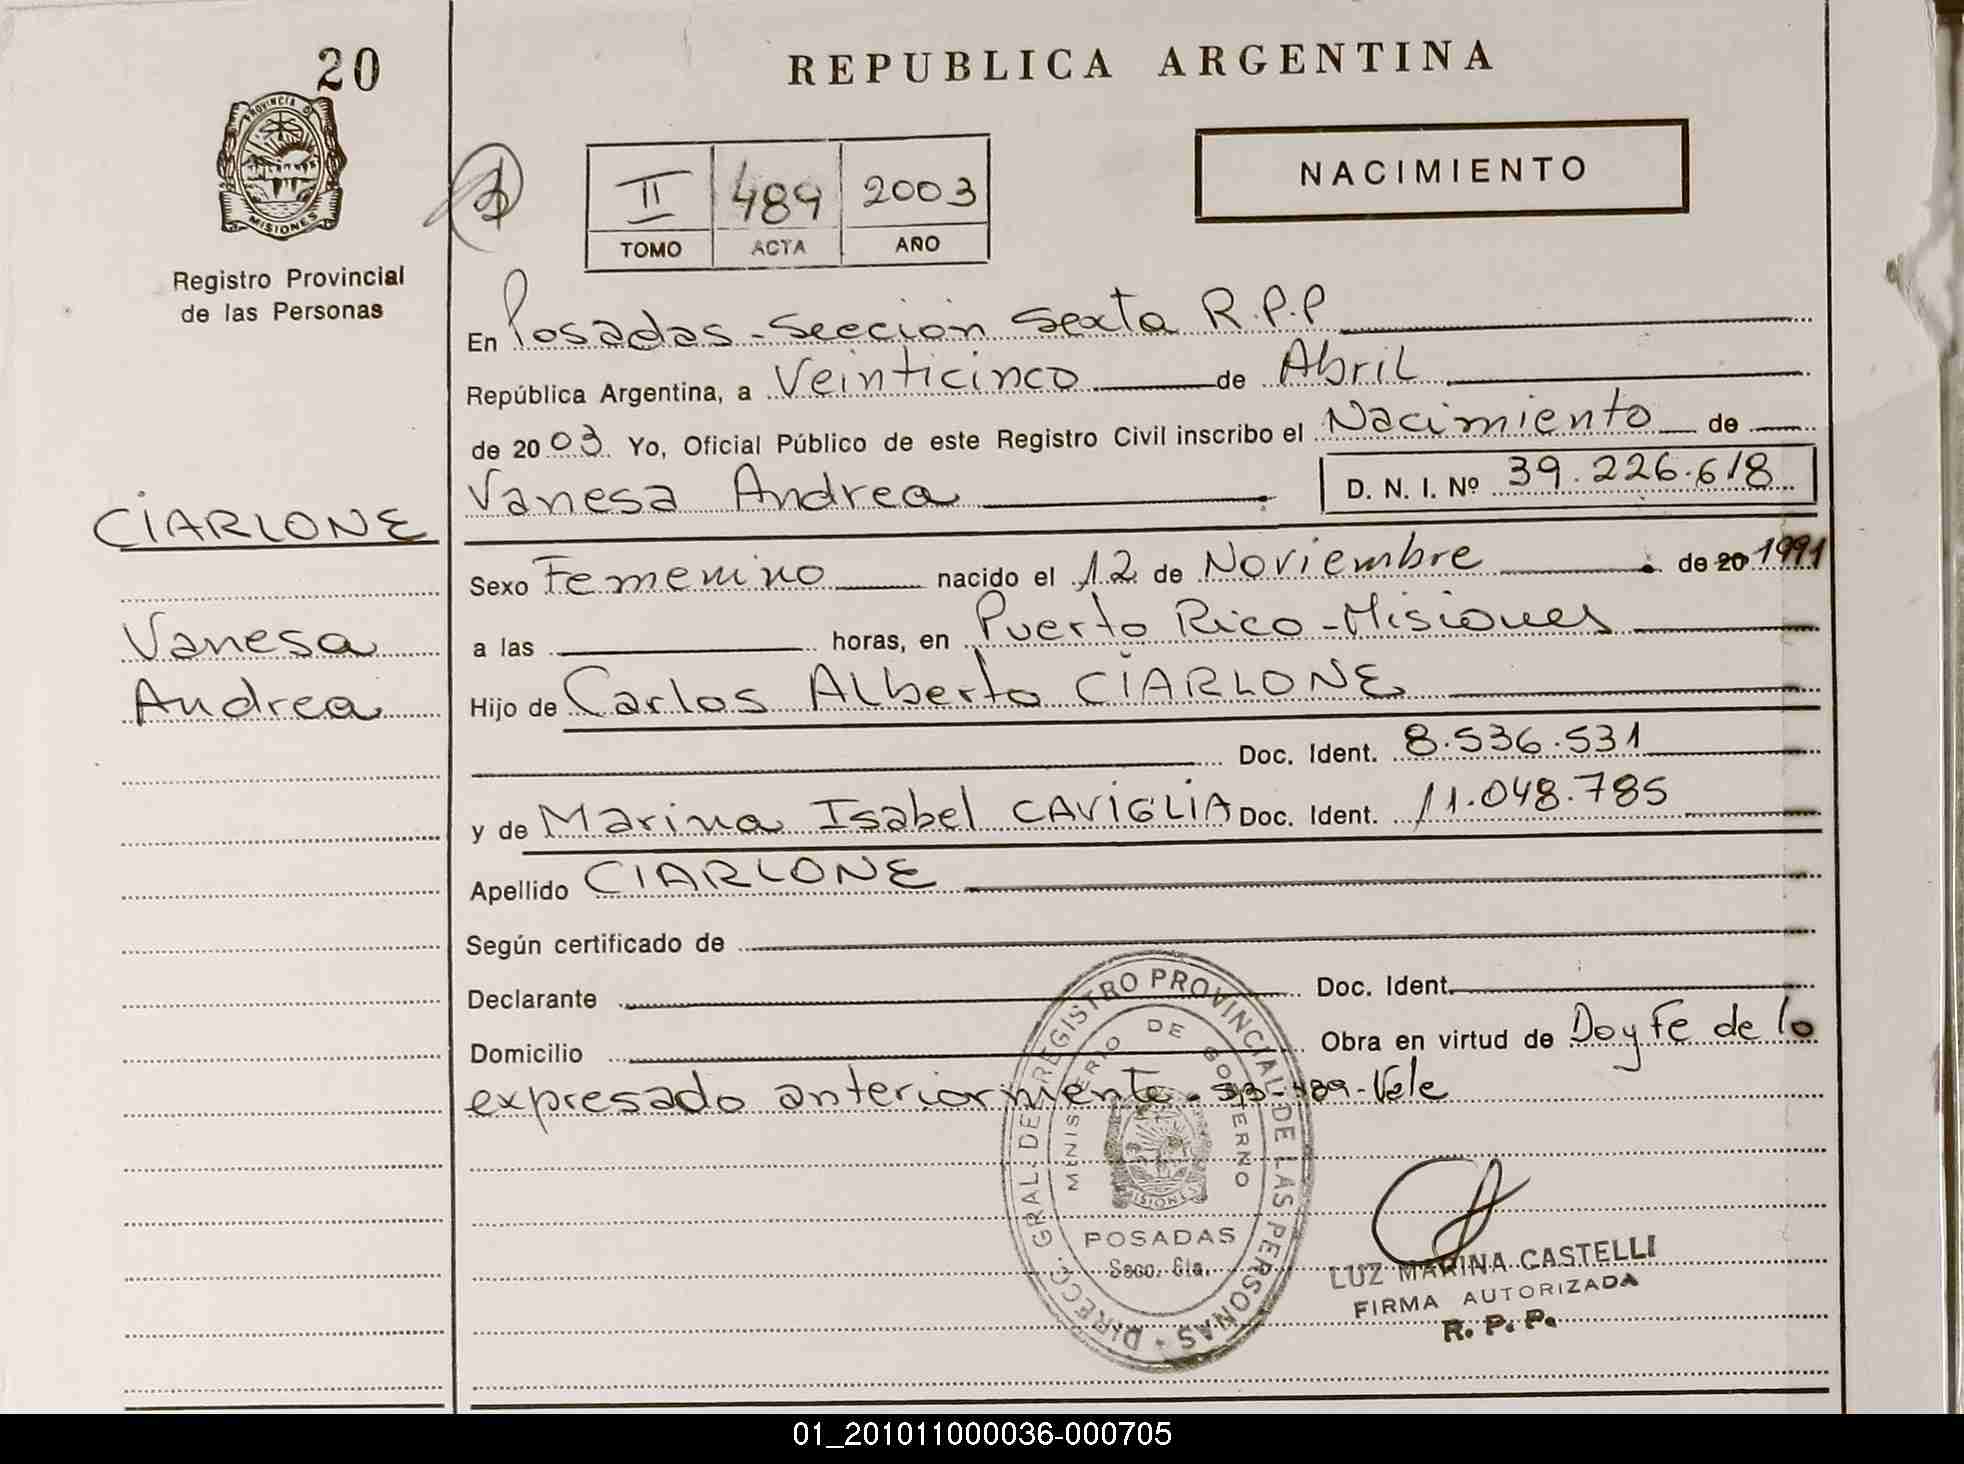 20
REPUBLICA ARGENTINA
PROVINCIA DE
MISIONES
Registro Provincial
de las Personas
II 489 2003
TOMO ACTA AÑO
NACIMIENTO
En Posadas - Seccion Sexta R.P.P
República Argentina, a Veinticinco de Abril
de 2003 Yo, Oficial Público de este Registro Civil inscribo el Nacimiento de
Vanesa Andrea D. N. I. Nº 39.226.618
CIARLONE
Vanesa
Andrea
Sexo Femenino nacido el 12 de Noviembre de 20 1991
a las horas, en Puerto Rico - Misiones
Hijo de Carlos Alberto CIARLONE
Doc. Ident. 8.536.531
y de Marina Isabel CAVIGLIA Doc. Ident. 11.048.785
Apellido CIARLONE
Según certificado de
Declarante Doc. Ident.
Domicilio Obra en virtud de Doy Fe de lo
expresado anteriormente - - Vale
DIRECC. GRAL. DE REGISTRO PROVINCIAL DE LAS PERSONAS
MINISTERIO DE GOBIERNO
MISIONES
POSADAS
LUZ MARINA CASTELLI
FIRMA AUTORIZADA
R. P. P.
01_201011000036-000705